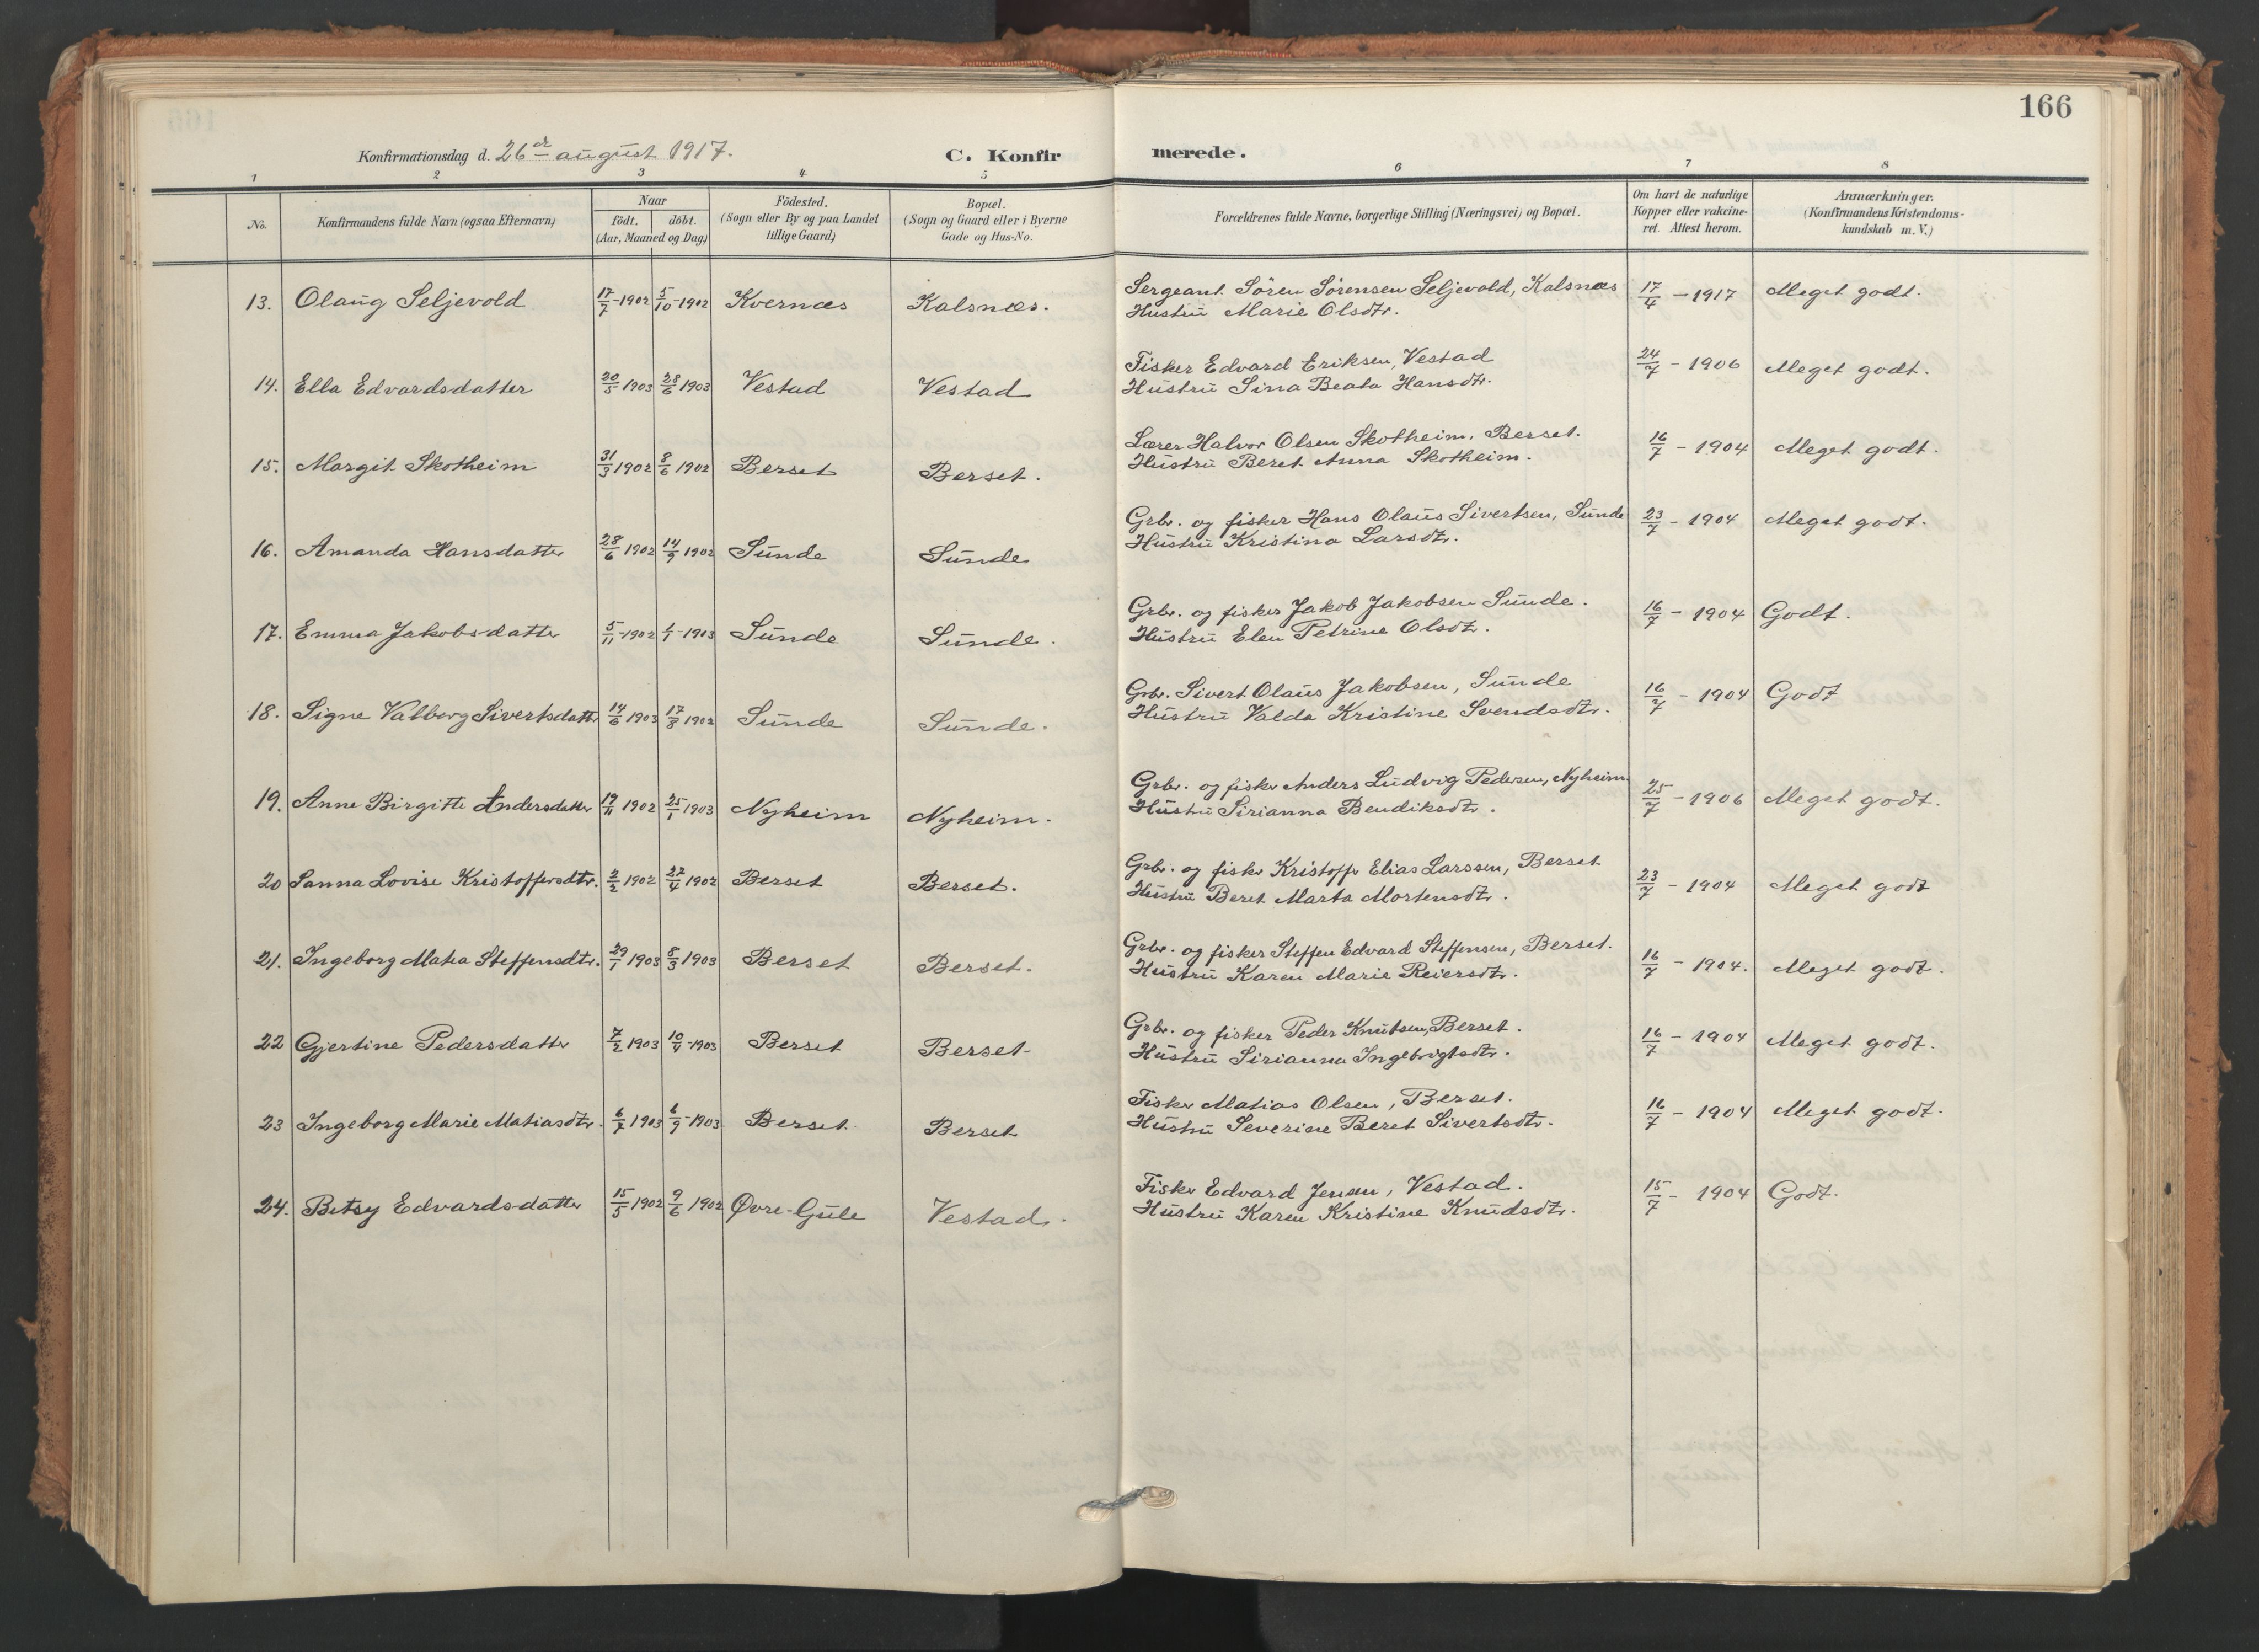 166
Konfirmationsdag d. 26de august 1917. C. Konfirmerede.
1 2 3 4 5 6 7 8
No. Konfirmandens fulde Navn (ogsaa Efternavn) Naar födt. döbt. (Aar, Maaned og Dag) Födested. (Sogn eller By og paa Landet tillige Gaard) Bopæl. (Sogn og Gaard eller i Byerne Gade og Hus-No. Forældrenes fulde Navne, borgerlige Stilling (Næringsvei) og Bopæl. Om havt de naturlige Kopper eller vakcineret. Attest herom. Anmærkninger. (Konfirmandens Kristendomskundskab m. V.)
13. Olaug Seljevold 17/7-1902 5/10-1902 Kvernæs Kalsnæs. Sergeant Sören Sörensen Seljevold, Kalsnæs 17/4 - 1917 Meget godt.
Hustru Marie Olsdtr.
14. Ella Edvardsdatter 20/5 1903 28/6 1903 Vestad Vestad Fisker Edvard Eriksen, Vestad 24/7 - 1906 Meget godt.
Hustru Sina Beata Hansdtr.
15. Margit Skotheim 31/3 1902 8/6 1902 Berset Berset. Lærer Halvor Olsen Skotheim, Berset. 16/7 - 1904 Meget godt.
Hustru Beret Anna Skotheim.
16. Amanda Hansdatter 28/6 1902 14/9 1902 Sunde Sunde Grbr. og fisker Hans Olaus Sivertsen, Sunde 23/7 - 1904 Meget godt.
Hustru Kristina Larsdtr.
17. Emma Jakobsdatter 5/11-1902 1/1-1903 Sunde Sunde. Grbr. og fisker Jakob Jakobsen Sunde. 16/7 - 1904 Godt.
Hustru Elen Petrine Olsdtr.
18. Signe Valborg Sivertsdatter 14/6 1903 17/8 1902 Sunde Sunde. Grbr. Sivert Olaus Jakobsen, Sunde 16/7 - 1904 Godt
Hustru Valda Kristine Svendsdtr.
19. Anne Birgitte Andersdatter 19/11 1902 25/1 1903 Nyheim Nyheim. Grbr. og fisker Anders Ludvig Pedersen, Nyheim 25/7 - 1906 Meget godt.
Hustru Sirianna Bendiksdtr.
20 Sanna Lovise Kristoffersdtr. 2/2 1902 27/4 1902 Berset Berset. Grbr. og fisker Kristoffer Elias Larssen, Berset 23/7 - 1904 Meget godt
Hustru Beret Marta Mortensdtr.
21. Ingeborg Matea Steffensdtr. 29/1 1903 8/3 1903 Berset Berset. Grbr. og fisker Steffen Edvard Steffensen, Berset. 16/7 - 1904. Meget godt.
Hustru Karen Marie Reiersdtr.
22 Gjertine Pedersdatter 7/2 1903 10/4-1903 Berset Berset Grbr. og fisker Peder Knutsen, Berset. 16/7 - 1904 Meget godt.
Hustru Sirianna Ingebrigtsdtr.
23 Ingeborg Marie Matiasdtr. 6/7 1903 6/9-1903 Berset Berset Fisker Matias Olsen, Berset. 16/7 - 1904 Meget godt.
Hustru Severine Beret Sivertsdtr.
24. Betsy Edvardsdatter 15/5 1902 9/6 1902 Øvre-Gule Vestad. Fisker Edvard Jensen, Vestad. 15/7 - 1904 Godt.
Hustru Karen Kristine Knudsdtr.